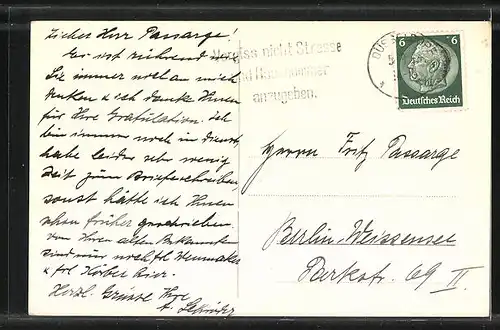 Lieber Herr Passarge!
Es ist rührend
Sie immer noch an mich
denken & ich danke Ihnen
für Ihre Gratulation. ich
bin immer noch in Dienst,
habe leider sehr wenig
Zeit zum Briefeschreiben
sonst hätte ich Ihnen
schon früher geschrieben.
Von Ihren alten Bekannten
sind nur noch frl.
& frl. hier.
Herzl. Grüsse Ihre
Vergiss nicht Strasse
und Hausnummer
anzugeben.
DÜSSELDORF
6 6
Deutsches Reich
Herrn Fritz Passarge
Berlin-Weissensee
Parkstr. 69 II